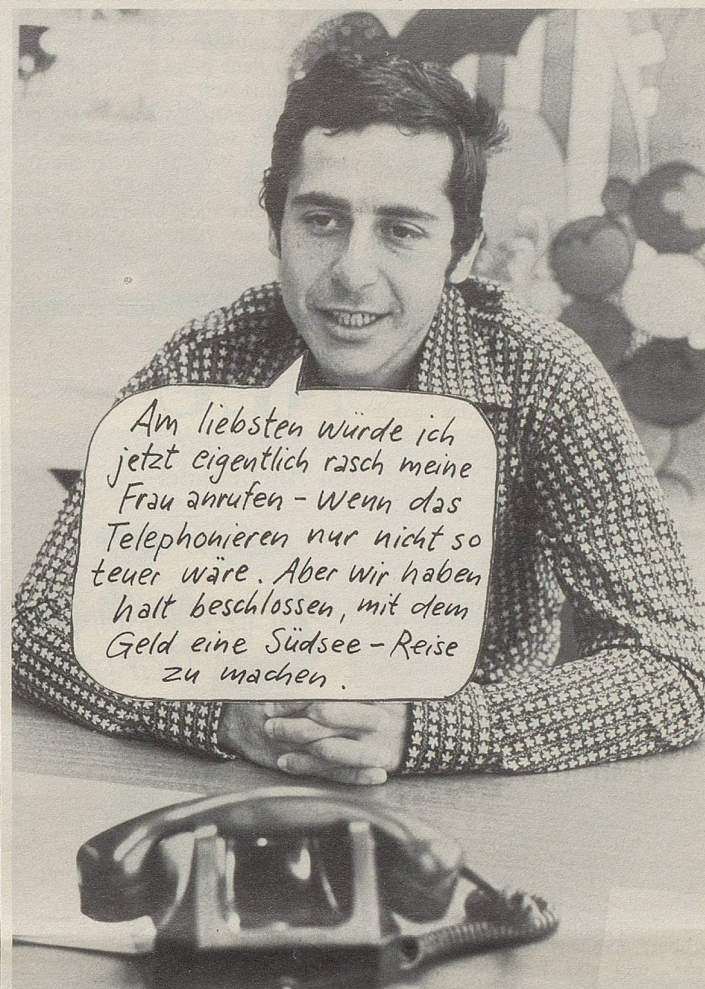 Am liebsten würde ich
jetzt eigentlich rasch meine
Frau anrufen – wenn das
Telephonieren nur nicht so
teuer wäre. Aber wir haben
halt beschlossen, mit dem
Geld eine Südsee – Reise
zu machen.